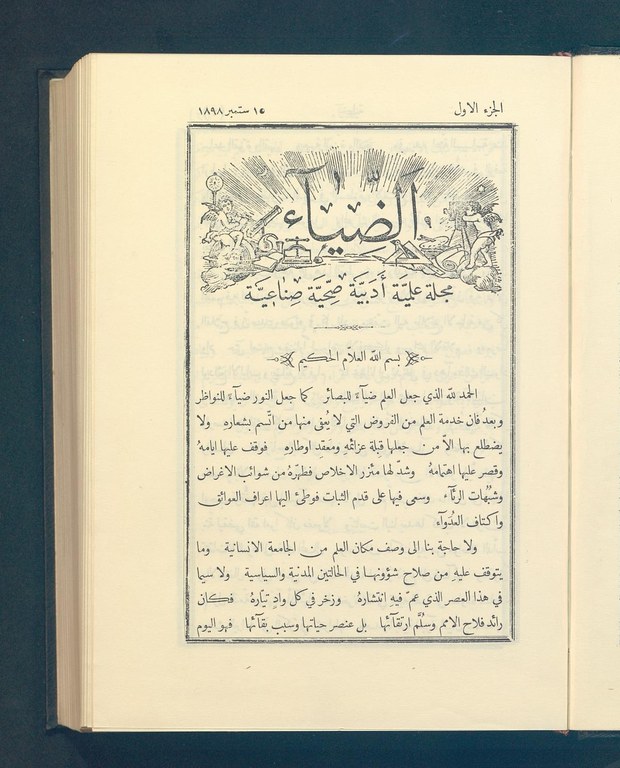 الجزء الاول
١٥ ستمبر ١٨٩٨
الضِّيآء
مجلة علميَّة أَدَبيَّة صِحّيَّة صِناعيَّة
بسم الله العلام الحكيم
الحمد لله الذي جعل العلم ضيآءً للبصائر كما جعل النور ضيآءً للنواظر
وبعدُ فان خدمة العلم من الفروض التي لا يُعفى منها من اتَّسم بشعارهِ ولا
يضطلع بها الاَّ من جعلها قِبلة عزائمهِ ومَعقِد اوطارهِ فوقف عليها ايامهُ
وقصر عليها اهتمامهُ وشدَّ لها مئزر الاخلاص فطهَّرهُ من شوائب الاغراض
وشُبُهات الرئآء وسعى فيها على قدم الثبات فوطئ اليها اعراف العوائق
واكتاف العُدَوآء
ولا حاجة بنا الى وصف مكان العلم من الجامعة الانسانية وما
يتوقف عليهِ من صلاح شؤونها في الحالتين المدنية والسياسية ولا سيما
في هذا العصر الذي عمَّ فيهِ انتشارهُ وزخر في كل وادٍ تيّارهُ فكان
رائد فلاح الامم وسُلَّم ارتقآئها بل عنصر حياتها وسبب بقآئها فهو اليوم